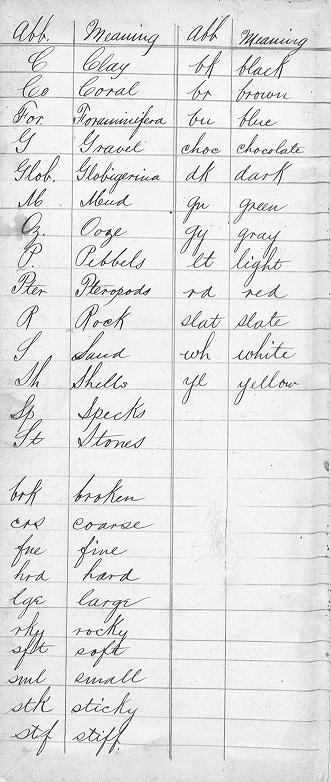 Abb. Meaning Abb Meaning
C Clay bk black
Co Coral br brown
For Foraminifera bu blue
G Gravel choc chocolate
Glob. Globigerina dk dark
M Mud gn green
Oz. Ooze gy gray
P Pebbels lt light
Pter Pteropods rd red
R Rock slat slate
S Sand wh white
Sh Shells yl yellow
Sp Specks
St Stones
brk broken
crs coarse
fne fine
hrd hard
lge large
rky rocky
sft soft
sml small
stk sticky
stf stiff